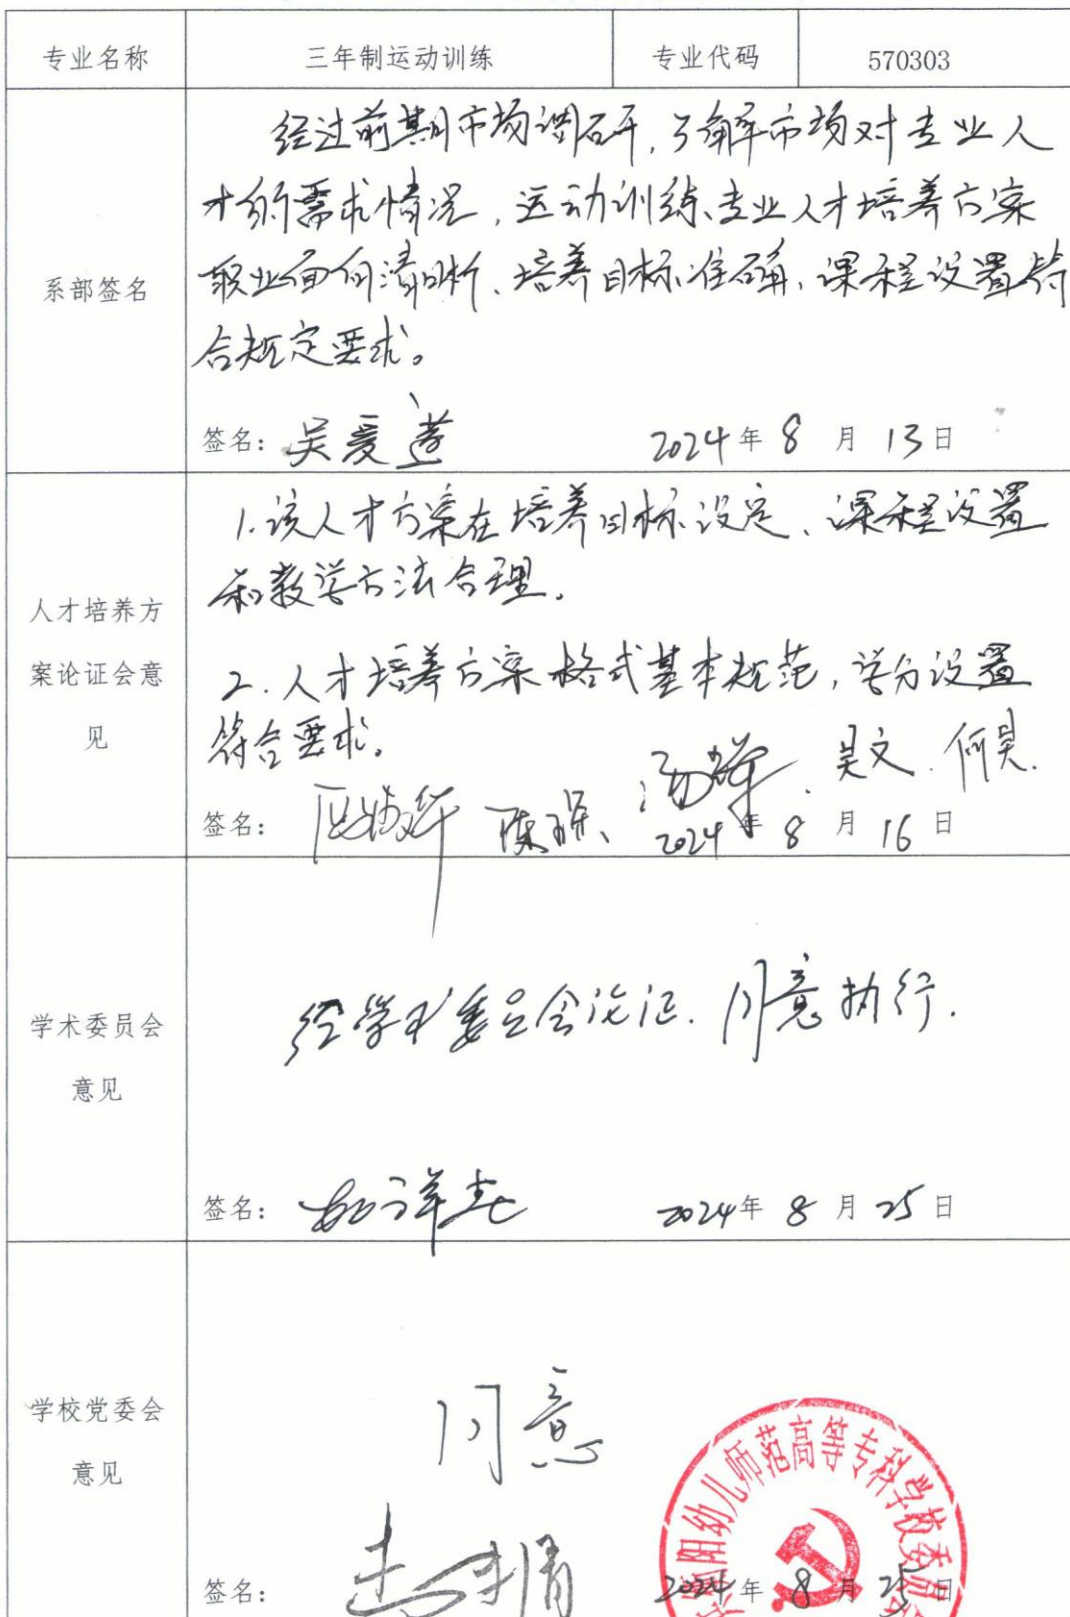 专业名称 三年制运动训练 专业代码 570303
系部签名
经过前期市场调研,了解市场对专业人
才的需求情况,运动训练专业人才培养方案
职业面向清晰、培养目标准确,课程设置符
合规定要求。
签名: 2024年 8 月 13日
人才培养方
案论证会意
见
1.该人才方案在培养目标设定、课程设置
和教学方法合理.
2.人才培养方案格式基本规范,学分设置
符合要求。
吴文. 何昊.
签名: 2024年 8 月 16 日
学术委员会
意见
经学术委员会论证.同意执行.
签名: 2024年 8 月 25日
学校党委会
意见
同意
阳幼儿师范高等专科学校委员会
签名: 2024年 8 月 25日